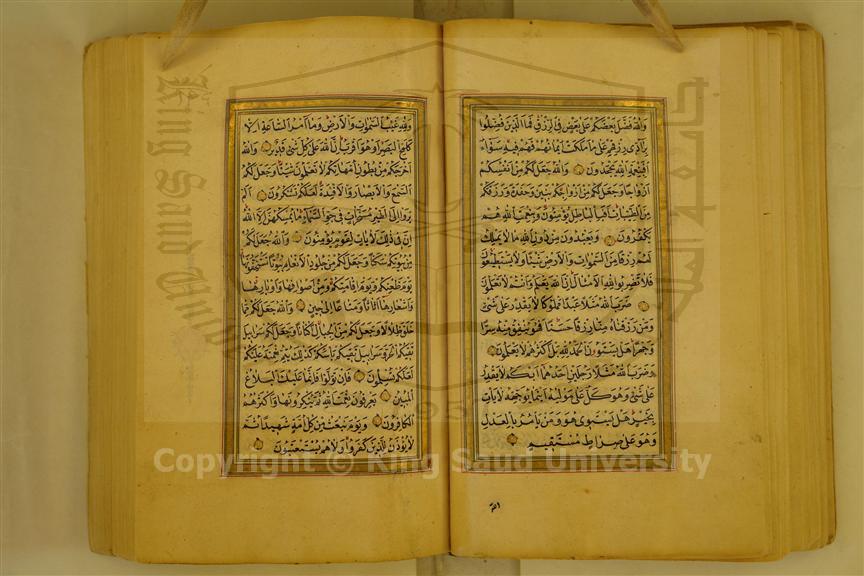 والله فضل بعضكم على بعض في الرزق فما الذين فضلوا
برآدي رزقهم على ما ملكت ايمانهم فهم فيه سواء
افبنعمة الله يجحدون والله جعل لكم من انفسكم
ازواجا وجعل لكم من ازواجكم بنين وحفدة ورزقكم
من الطيبات افبالباطل يؤمنون وبنعمت الله هم
يكفرون ويعبدون من دون الله ما لا يملك
لهم رزقا من السموات والارض شيئا ولا يستطيعون
فلا تضربوا لله الامثال ان الله يعلم وانتم لا تعلمون
ضرب الله مثلا عبدا مملوكا لا يقدر على شئ
ومن رزقناه منا رزقا حسنا فهو ينفق منه سرا
وجهرا هل يستوون الحمد لله بل اكثرهم لا يعلمون
وضرب الله مثلا رجلين احدهما ابكم لا يقدر
على شئ وهو كل على موليه اينما يوجهه لا يات
بخير هل يستوى هو ومن يأمر بالعدل
وهو على صراط مستقيم
ولله غيب السموات والارض وما امر الساعة الا
كلمح البصر او هو اقرب ان الله على كل شئ قدير والله
اخرجكم من بطون امهاتكم لا تعلمون شيئا وجعل لكم
السمع والابصار والافئدة لعلكم تشكرون الم
يروا الى الطير مسخرات في جو السماء ما يمسكهن الا الله
ان في ذلك لايات لقوم يؤمنون والله جعل لكم
من بيوتكم سكنا وجعل لكم من جلود الانعام بيوتا تستخفونها
يوم ظعنكم ويوم اقامتكم ومن اصوافها واوبارها
واشعارها اثاثا ومتاعا الى حين والله جعل لكم مما
خلق ظلالا وجعل لكم من الجبال اكنانا وجعل لكم سرابيل
تقيكم الحر وسرابيل تقيكم باسكم كذلك يتم نعمته عليكم
لعلكم تسلمون فان تولوا فانما عليك البلاغ
المبين يعرفون نعمت الله ثم ينكرونها واكثرهم
الكافرون ويوم نبعث من كل امة شهيدا ثم
لا يؤذن للذين كفروا ولا هم يستعتبون
ولله
Copyright © King Saud University
King Saud University
جامعة الملك سعود